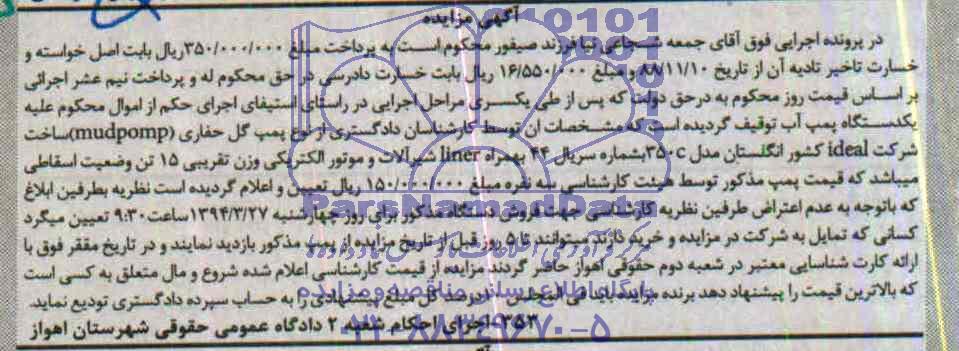 آگهی مزایده
در پرونده اجرایی فوق آقای جمعه شجاعی نیا فرزند صیفور محکوم است به پرداخت مبلغ ۳۵۰/۰۰۰/۰۰۰ریال بابت اصل خواسته و
خسارت تاخیر تادیه آن از تاریخ ۸۸/۱۱/۱۰ و مبلغ ۱۶/۵۵۰/۰۰۰ ریال بابت خسارت دادرسی در حق محکوم له و پرداخت نیم عشر اجرائی
بر اساس قیمت روز محکوم به درحق دولت که پس از طی یکسری مراحل اجرایی در راستای استیفای اجرای حکم از اموال محکوم علیه
یکدستگاه پمپ آب توقیف گردیده است که مشخصات ان توسط کارشناسان دادگستری از نوع پمپ گل حفاری (mudpomp)ساخت
شرکت ideal کشور انگلستان مدل ۳۵۰c بشماره سریال ۴۴ بهمراه liner شیرآلات و موتور الکتریکی وزن تقریبی ۱۵ تن وضعیت اسقاطی
میباشد که قیمت پمپ مذکور توسط هیئت کارشناسی سه نفره مبلغ ۱۵۰/۰۰۰/۰۰۰ ریال تعیین و اعلام گردیده است نظریه بطرفین ابلاغ
که باتوجه به عدم اعتراض طرفین نظریه کارشناسی جهت فروش دستگاه مذکور برای روز چهارشنبه ۱۳۹۴/۳/۲۷ ساعت ۹:۳۰ تعیین میگرد
کسانی که تمایل به شرکت در مزایده و خرید دارند میتوانند تا ۵ روز قبل از تاریخ مزایده از پمپ مذکور بازدید نمایند و در تاریخ مقرر فوق با
ارائه کارت شناسایی معتبر در شعبه دوم حقوقی اهواز حاضر گردند مزایده از قیمت کارشناسی اعلام شده شروع و مال متعلق به کسی است
که بالاترین قیمت را پیشنهاد دهد برنده مزایده باید فی المجلس ۱۰ درصد کل مبلغ پیشنهادی را به حساب سپرده دادگستری تودیع نماید.
۳۵۳ اجرای احکام شعبه ۲ دادگاه عمومی حقوقی شهرستان اهواز
ParsNamadData
پایگاه اطلاع رسانی مناقصه و مزایده
۰۲۱-۸۸۳۴۹۶۷۰-۵